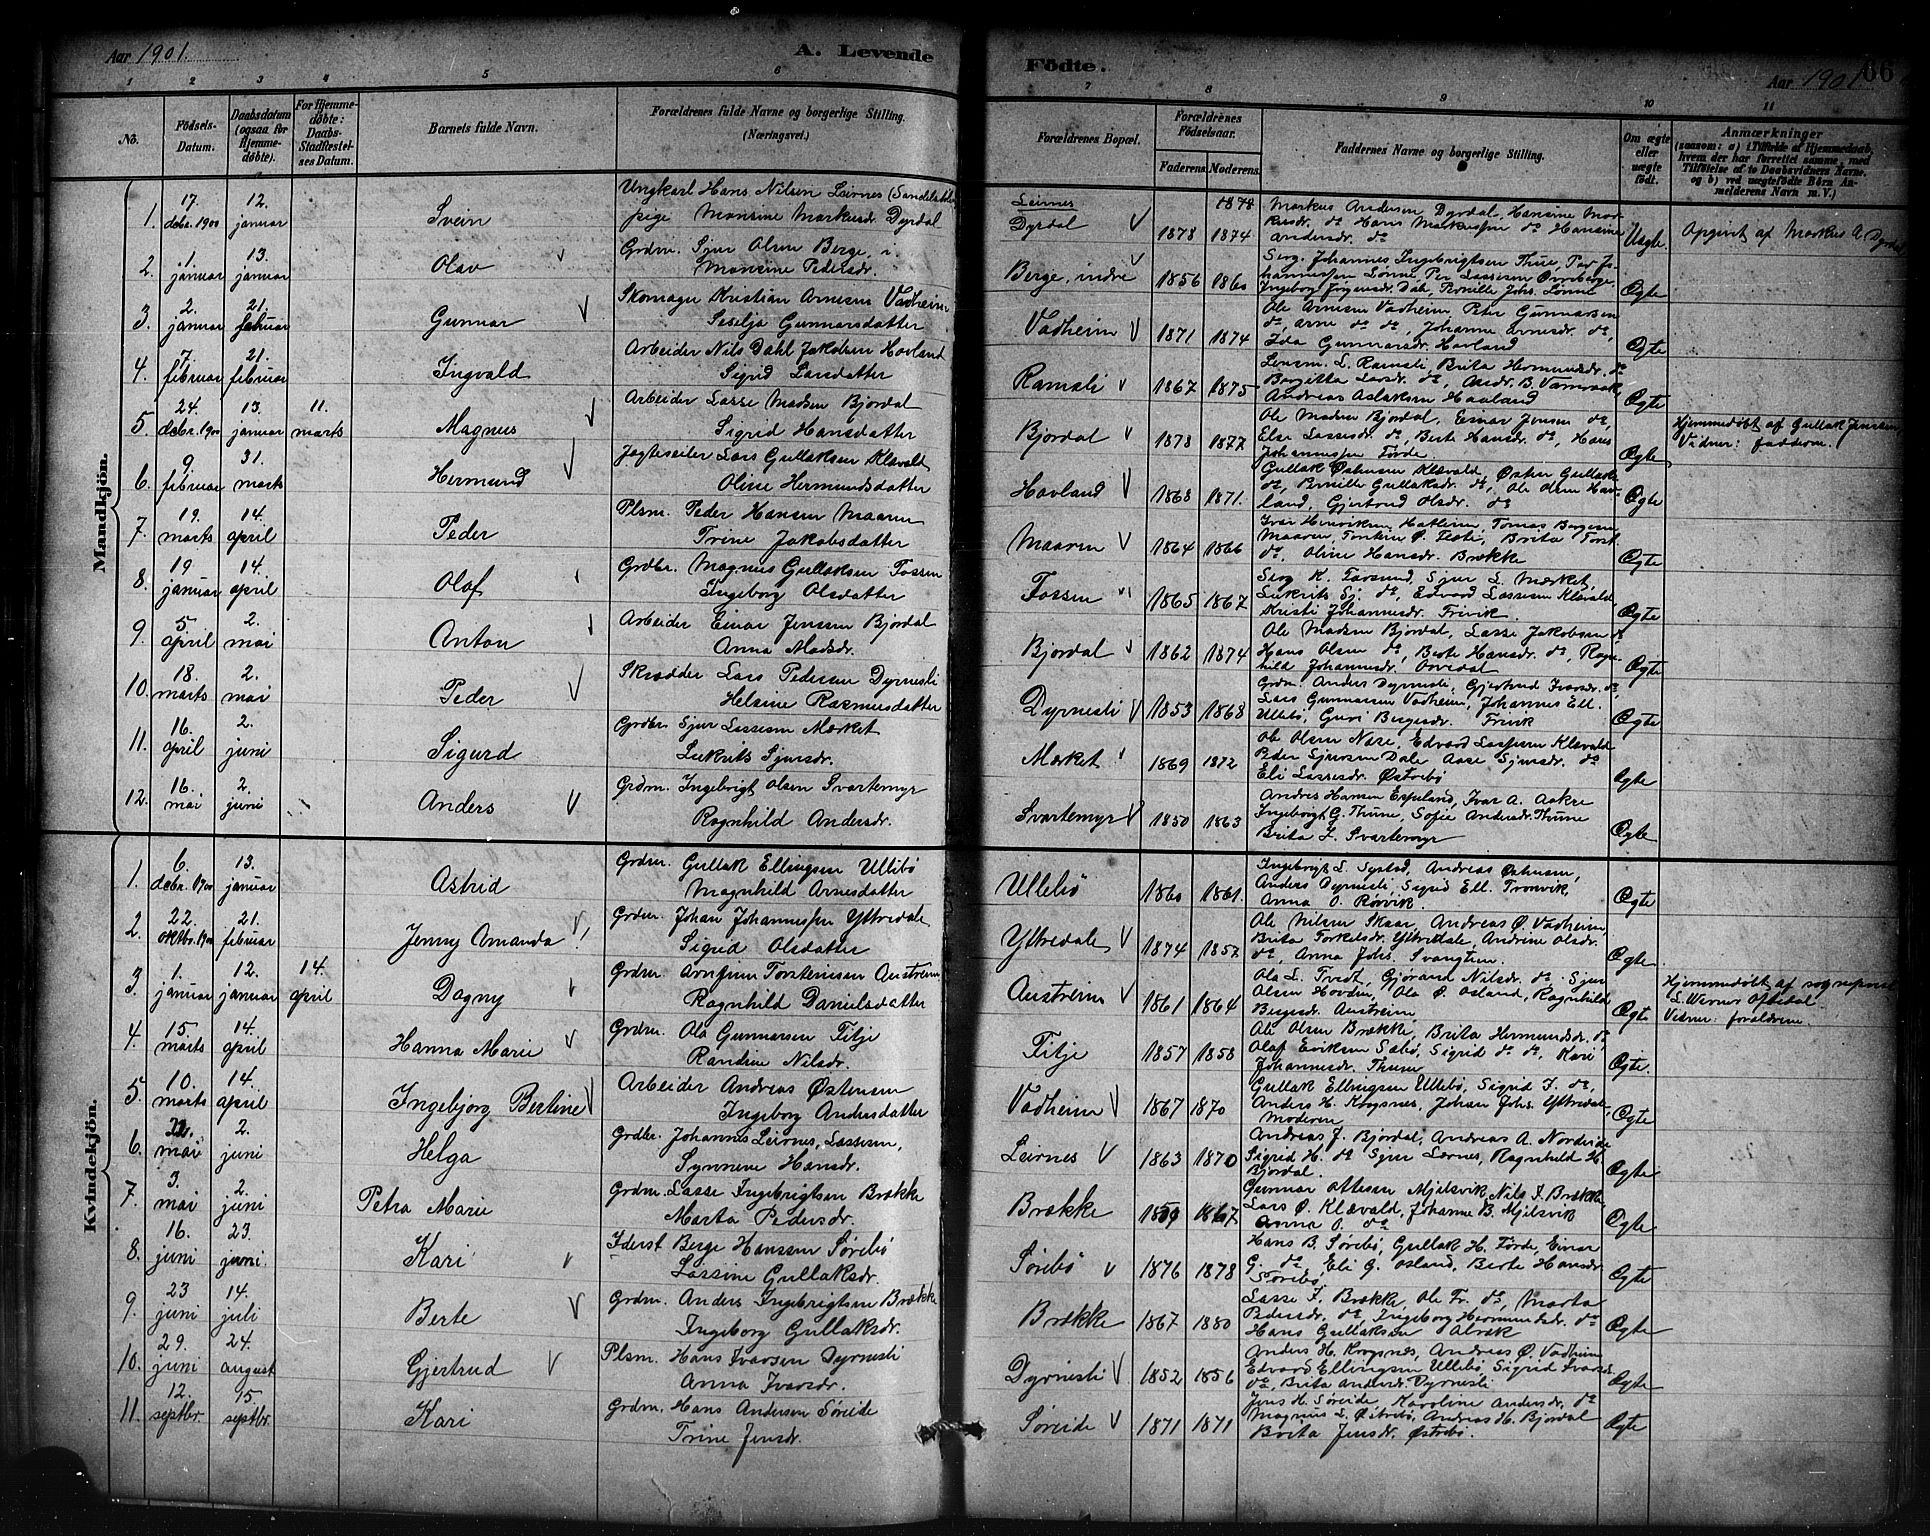 Aar 1901. A. Levende Fødte. Aar 1901. 66
1 2 3 4 5 6 7 8 9 10 11
No. Fødsels-Datum. Daabsdatum (ogsaa for Hjemmedøbte). For Hjemmedøbte: Daabs-Stadfæstelses Datum. Barnets fulde Navn. Forældrenes fulde Navne og borgerlige Stilling. (Næringsvei.) Forældrenes Bopæl. Forældrenes Fødselsaar. Faderens Moderens. Faddernes Navne og borgerlige Stilling. Om ægte eller uægte født. Anmærkninger (saasom: a) i Tilfælde af Hjemmedaab, hvem der har forrettet samme, med Tilføielse af to Daabsvidners Navne, og b) ved uægtefødte Børn Anmelderens Navn m. V.)
Mandkjøn.
1. 17. debr. 1900 12. januar Svein Ungkarl Hans Nilsen Leirnes
pige Monsine Markusdr. Dyrdal Leirnes Dyrdal 1878 1874 Markus Andersen Dyrdal, Hansine Markusdr. do Hans Markussen do Hansine Andersdr. do Uegte. Opgivet af Markus A. Dyrdal
2. 1. januar 13. januar Olav Grdm. Sjur Olsen Berge, i.
Monsine Pedersdr. Berge, indre 1856 1860 Serg. Johannes Ingebrigtsen Thue, Per Johannessen Lønne Per Lassesen
Ingeborg Dale, Pernille Johs. Lønne Ægte
3. 2. januar 21. februar Gunnar Skomager Kristian Arnesen Vadheim
Sesilja Gunnarsdatter Vadheim 1871 1874 Ole Arnesen Vadheim Peter Gunnarsen
do, Arne do do, Johanne Arnesdr. do,
Ida Gunnarsdr. Hovland Ægte
4. 7. februar 21. februar Ingvald Arbeider Nils Dahl Jakobsen Hovland
Sigrid Larsdatter Ramsli 1867 1875 Lensm. L. Ramsli, Brita Hermundsdr. do
Borgitta Larsdr. do,
Andreas Aslaksen Haaland Ægte
5. 24. debr. 1900 13. januar 11. marts Magnus Arbeider Lasse Madsen Bjordal
Sigrid Hansdatter Bjordal 1873 1877 Ole Madsen Bjordal, Einar Jensen do,
Else Lassesdr. do, Berte Hansdr. do, Hans
Johannessen Førde. Ægte Hjemmedøbt af Gullak Jensen
Vidner: fadderne.
6. 9. februar 31. marts Hermund Jægteseiler Lars Gullaksen Klævald
Oline Hermundsdatter Hovland 1868 1871. Gullak Østensen Klævald, Østen Gullaks.
do, Pernille Gullaksdr. do, Ole Olsen Hovland, Gjertrud Olsdr. do Ægte
7. 19. marts 14. april Peder Plsm. Peder Hansen Maaren
Trine Jakobsdatter Maaren 1864 1866 Ivar Henriksen Hatleim, Tomas Børgesen
Maaren, Brita Torst.
do, Oline Hansdr. Brække Ægte
8. 19 januar 14. april Olaf Grdbr. Magnus Gullaksen Fossen
Ingeborg Olsdatter Fossen 1865 1867 Serg K. Farsund, Sjur L. Mærket,
Lukrits Sj. do, Edvard Lassesen Klævald
Kristi Johannesdr. Frivik. Ægte
9. 5 april 2. mai Anton Arbeider Einar Jensen Bjordal
Anna Madsdr. Bjordal 1862 1874 Ole Madsen Bjordal, Lasse Jakobsen do
Hans Olsen do, Berte Hansdr. do, Ragnhild Johannesdr. Ægte
10. 18. marts 2. mai Peder Skrædder Lars Pedersen Dyrnesli
Helsine Rasmusdatter Dyrnesli 1853 1868 Grdm. Anders Dyrnesli, Gjertrud Ivarsdr. do,
Lars Gunnarsen Vadheim, Johannes Ell.
Ullebø, Guri Bergesdr. Frivik Ægte
11. 16. april 2. juni Sigurd Grdbr. Sjur Lassesen Mærket
Lukrits Sjursdr. Mærket 1869 1872 Ole Olsen Nase, Edvard Lassesen Klævald
Peder Sjursen Dale Aase Sjursdr. do
Eli Lassesdr. Østrebø Ægte
12. 16. mai 2. juni Anders Grdm. Ingebrigt Olsen Svartemyr
Ragnhild Andersdr. Svartemyr 1850 1863 Andres Hansen Espeland, Ivar A. Aakre
Ingeborgt G. Thune, Sofie Andersdr. Thune
Brita I. Svartemyr Ægte
Kvindekjøn.
1. 6. debr. 1900 13. januar Astrid Grdm. Gullak Ellingsen Ullebø
Magnhild Arnesdatter Ullebø 1860 1861. Ingebrigt L. Systad, Andreas Østensen,
Anders Dyrnesli, Sigrid Ell. Tronvik,
Anna O. Rørvik. Ægte
2. 22. oktbr. 1900 21. februar Jenny Amanda Grdm. Johan Johannessen Ytredale
Sigrid Olsdatter Ytredale 1874 1857 Ole Nilsen Skaar, Andreas Ø. Vadheim
Brita Torkelsdr. Ytredale, Andrine Olsdr.
do, Anna Johs. Ægte
3. 1. januar 12. januar 14. april Dagny Grdm. Arnfinn Torsteinsen Austreim
Ragnhild Danielsdatter Austreim 1861 1864 Ola L. Tredt, Gjørand Nilsdr. do Sjur
Olsen Hovden, Ola Ø. Osland, Ragnhild
Bergesdr. Austreim Ægte Hjemmedøbt af sognepræst
L. Werner Oftedal
Vidner: forældrene.
4. 15. marts 14. april Hanna Marie Grdm. Ola Gunnarsen Fitje
Randine Nilsdr. Fitje 1857 1858 Ole Olsen Brække, Brita Hermundsdr. do
Olaf Eriksen Sæbø, Sigrid do do, Kari
Johannesdr. Thune Ægte.
5. 10. marts 14. april Ingebjorg Bertine Arbeider Andreas Østensen
Ingeborg Andersdatter Vadheim 1867 1870 Gullak Ellingsen Ullebø, Sigrid I. do,
Anders H. Krogsnes, Johan Johs. Ytredale,
Moderen Ægte
6. mai 2. juni Helga Grdbr. Johannes Leirnes, Lassesen,
Synneve Hansdr. Leirnes 1863 1870 Andreas J. Bjordal, Andreas A. Nordeide
Sigrid H. do Sjur Leirnes, Ragnhild H.
Bjordal. Ægte
7. 3. mai 2. juni Petra Marie Grdm. Lasse Ingebrigtsen Brække
Marta Pedersdr. Brække 1859 1867 Gunnar Ottesen Mjelsvik, Nils I. Brække,
Lars Ø. Klævald, Johanne B. Mjelsvik
Anna O. do Ægte
8. 16. juni 23. juni. Kari Føderst Berge Hanssen Sørebø
Lassine Gullaksdr. Sørebø 1876 1878 Hans B. Sørebø, Gullak H. Førde, Einar
G. do, Eli G. Osland, Berte Hansdr.
Sørebø. Ægte
9. 23 juni 14. juli Berte Grdm. Anders Ingebrigtsen Brække
Ingeborg Gullaksdr. Brække 1867 1880 Lasse I. Brække, Ole Fr. do, Marta
Pedersdr. do, Ingeborg Hermundsdr. do
Hans Gullaksen Alvæk Ægte
10. 29. juni 24. august Gjertrud Plsm. Hans Ivarsen Dyrnesli
Anna Ivarsdr. Dyrnesli 1852 1856 Anders H. Krogsnes, Andreas Ø. Vadheim
Edvard Ellingsen Ullebø Sigrid Ivarsdr.
do, Brita Andersdr. Dyrnesli Ægte
11. 12. septbr. 15. septbr. Kari Grdm. Hans Andersen Søreide
Trine Jensdr. Søreide 1871 1871 Jens H. Søreide, Karoline Andersdr. do
Magnus L. Østrebø, Andreas H. Bjordal
Brita Jensdr. Østrebø. Ægte